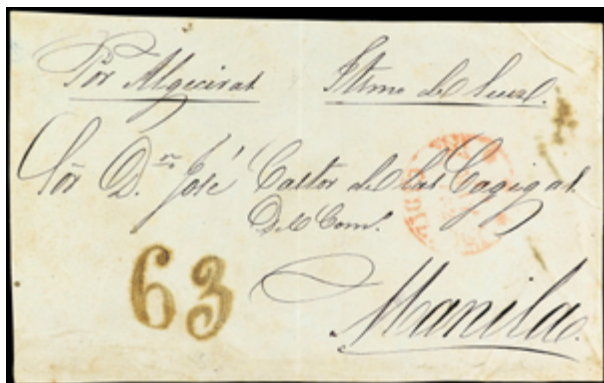 Por Algeciras Itsmo de Suez.
Sör. D.n José Castor de las Cagigas
Del Com.o
63
Manila.